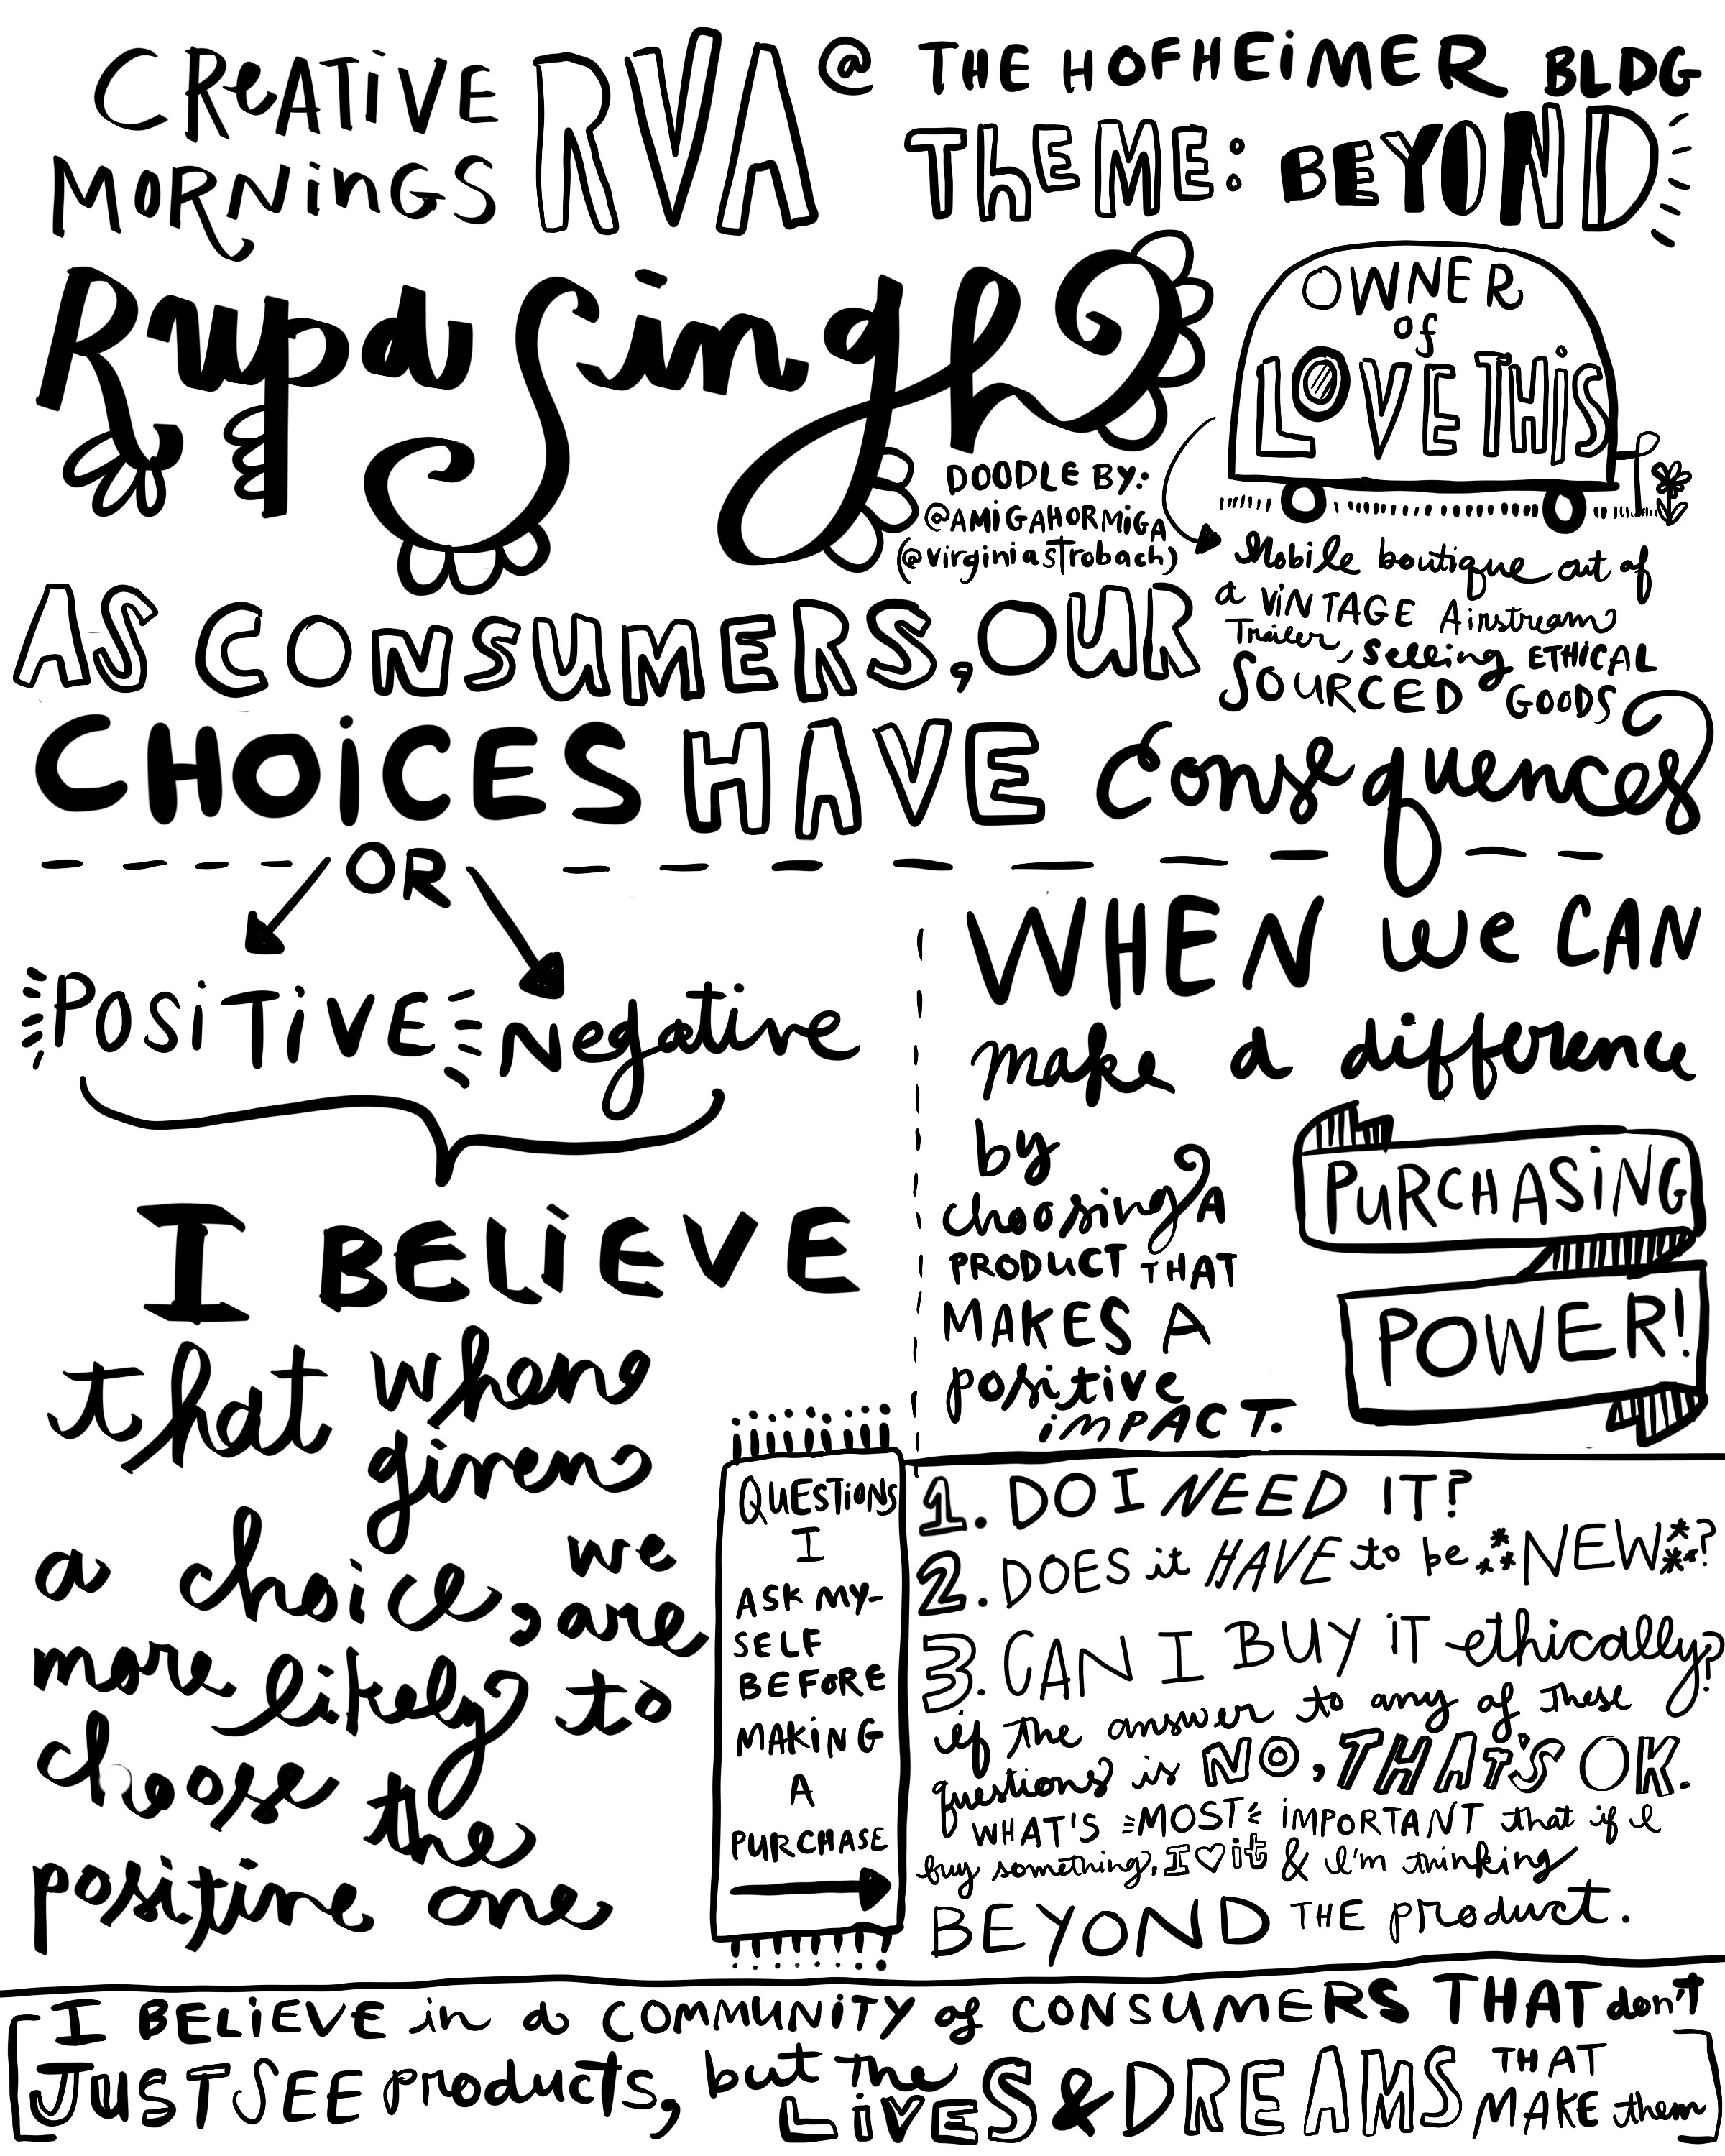 CREATIVE
MORNINGS
RVA
@ THE HOFHEIMER BLDG
THEME: BEYOND
Rupa Singh
OWNER
of
LOVE THIS
DOODLE BY:
@AMIGAHORMIGA
(@virginiastrobach)
Mobile boutique out of
a VINTAGE Airstream
Trailer, selling ETHICAL
SOURCED GOODS
AS CONSUMERS, OUR
CHOICES HAVE consequences
OR
POSITIVE Negative
I BELIEVE
that when
given
a choice, we
are
more likely to
choose the
positive one
WHEN we CAN
make a difference
by
choosing A
PRODUCT THAT
MAKES A
positive
IMPACT.
PURCHASING
POWER!
QUESTIONS
I
ASK MY-
SELF
BEFORE
MAKING
A
PURCHASE
1. DO I NEED IT?
2. DOES it HAVE to be *** NEW ***?
3. CAN I BUY IT ethically?
if the answer to any of these
questions is NO, THAT'S OK.
WHAT'S MOST IMPORTANT that if I
buy something, I ♡ it & I'm thinking
BEYOND THE product.
I BELIEVE in a COMMUNITY of CONSUMERS THAT don't
JUST SEE products, but the LIVES & DREAMS THAT
MAKE them